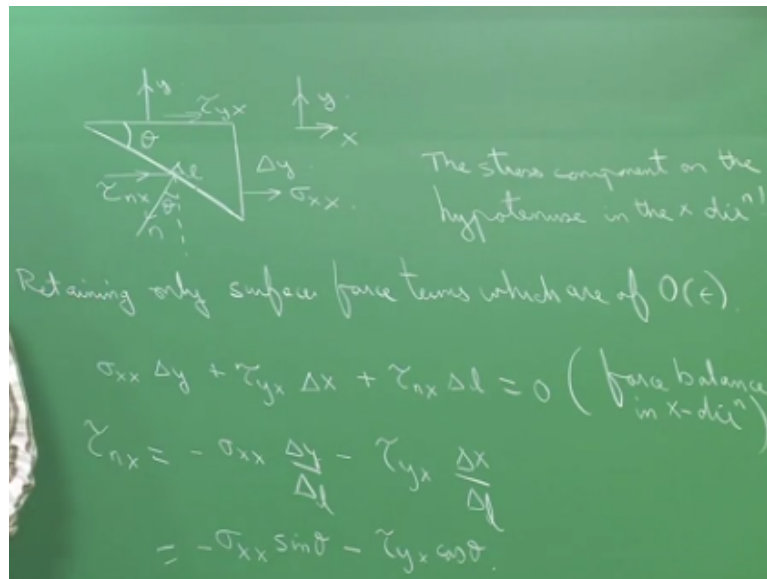 y
τyx
y
x
θ
Δl
Δy
τnx
σxx
θ
n
The stress component on the
hypotenuse in the x dirⁿ!
Retaining only surface force terms which are of O(ε).
σxx Δy + τyx Δx + τnx Δl = 0 (force balance
in x-dirⁿ)
τnx = - σxx Δy/Δl - τyx Δx/Δl
= - σxx sinθ - τyx cosθ.